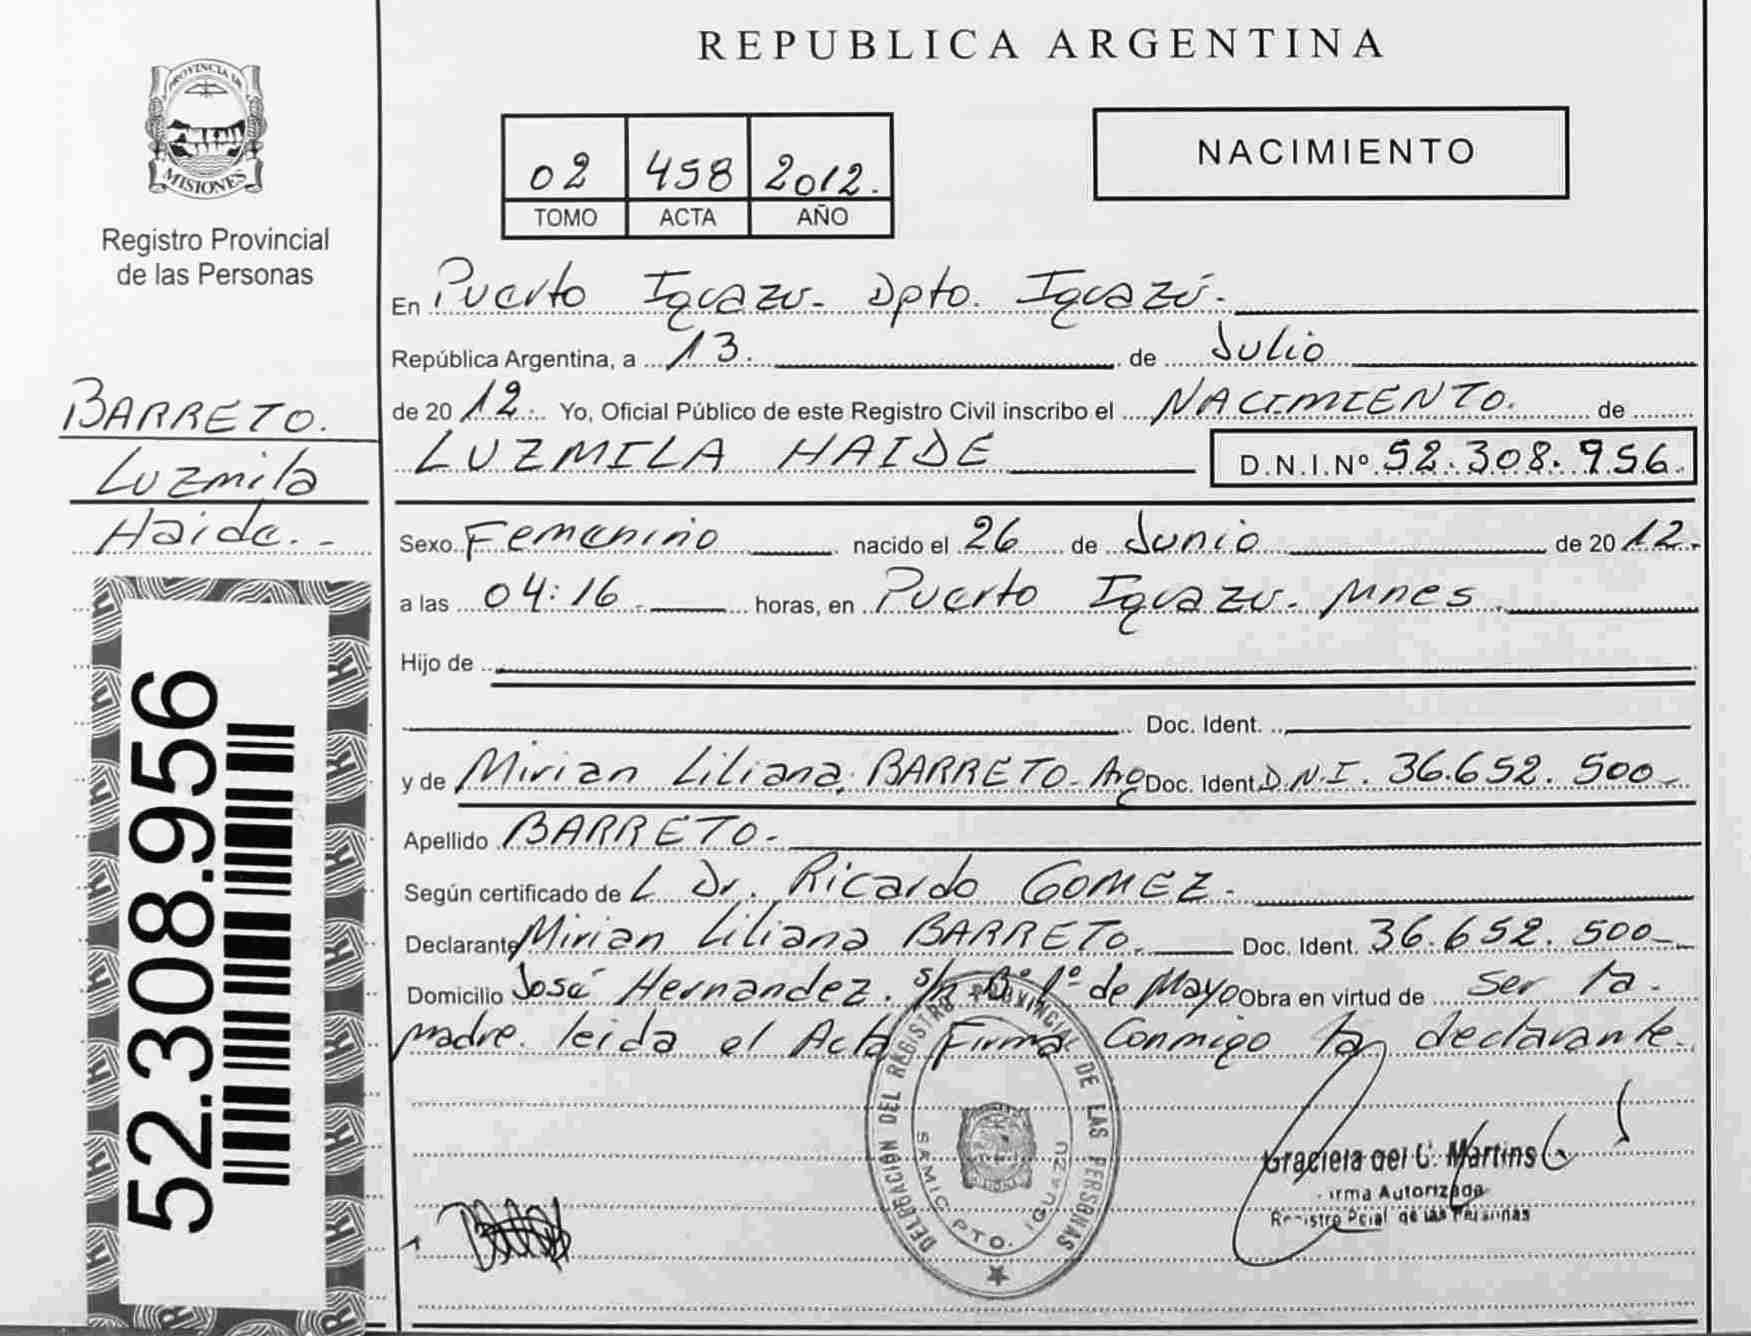 REPUBLICA ARGENTINA
PROVINCIA DE
MISIONES
Registro Provincial
de las Personas
02 458 2012.
TOMO ACTA AÑO
NACIMIENTO
En Puerto Iguazu- Dpto. Iguazú-
República Argentina, a 13. de Julio
de 2012. Yo, Oficial Público de este Registro Civil inscribo el NACIMIENTO. de
LUZMILA HAIDE D.N.I.Nº 52.308.956.
BARRETO.
Luzmila
Haide.-
Sexo Femenino nacido el 26 de Junio de 2012.-
a las 04:16 horas, en Puerto Iguazu- Mnes.
Hijo de
Doc. Ident.
y de Mirian Liliana BARRETO- Arg Doc. Ident. D.N.I. 36.652.500-
Apellido BARRETO-
Según certificado de L Dr. Ricardo GOMEZ-
Declarante Mirian Liliana BARRETO. Doc. Ident. 36.652.500-
Domicilio José Hernandez. s/n Bº 1º de Mayo Obra en virtud de ser la
madre. leida el Acta Firma Conmigo la declarante.
52.308.956
DELEGACIÓN DEL REGISTRO PROVINCIAL DE LAS PERSONAS
SAMIC PTO. IGUAZU
Graciela del C. Martins
Firma Autorizada
Registro Pcial de las Personas